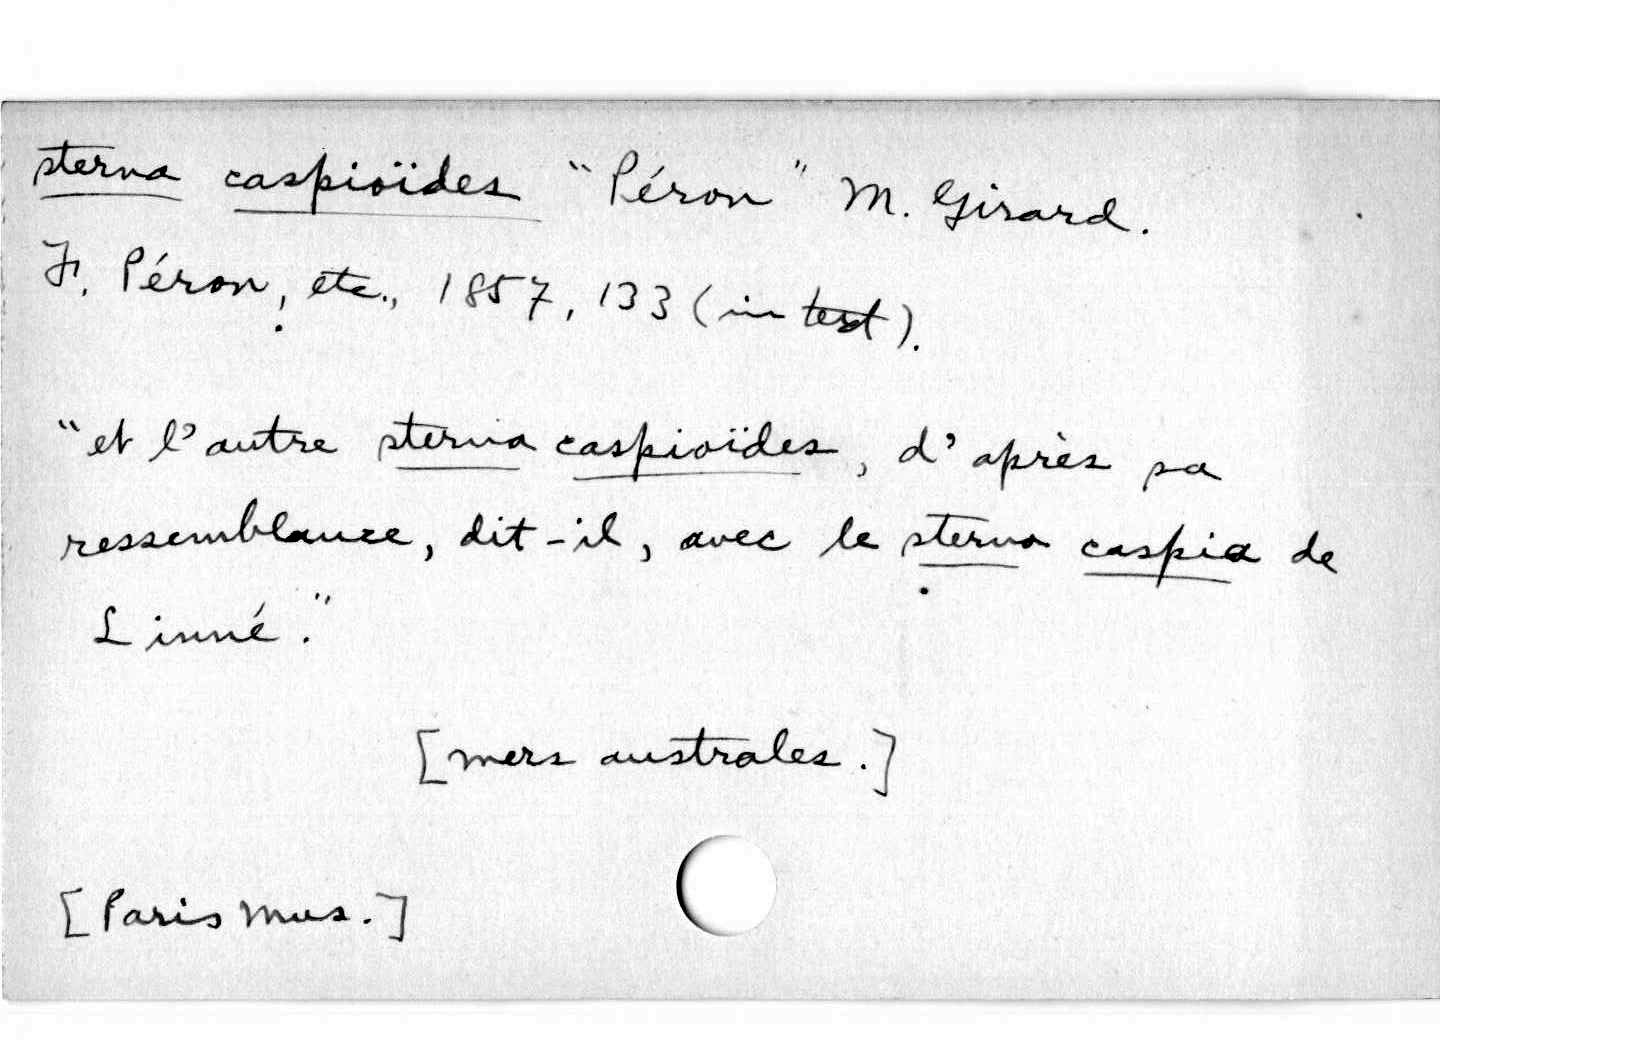 sterna caspioïdes "Péron" M. Girard.
F. Péron, etc., 1857, 133 (in text).
"et l'autre sterna caspioïdes, d'après sa
ressemblance, dit-il, avec le sterna caspia de
Linné."
[mers australes.]
[Paris Mus.]